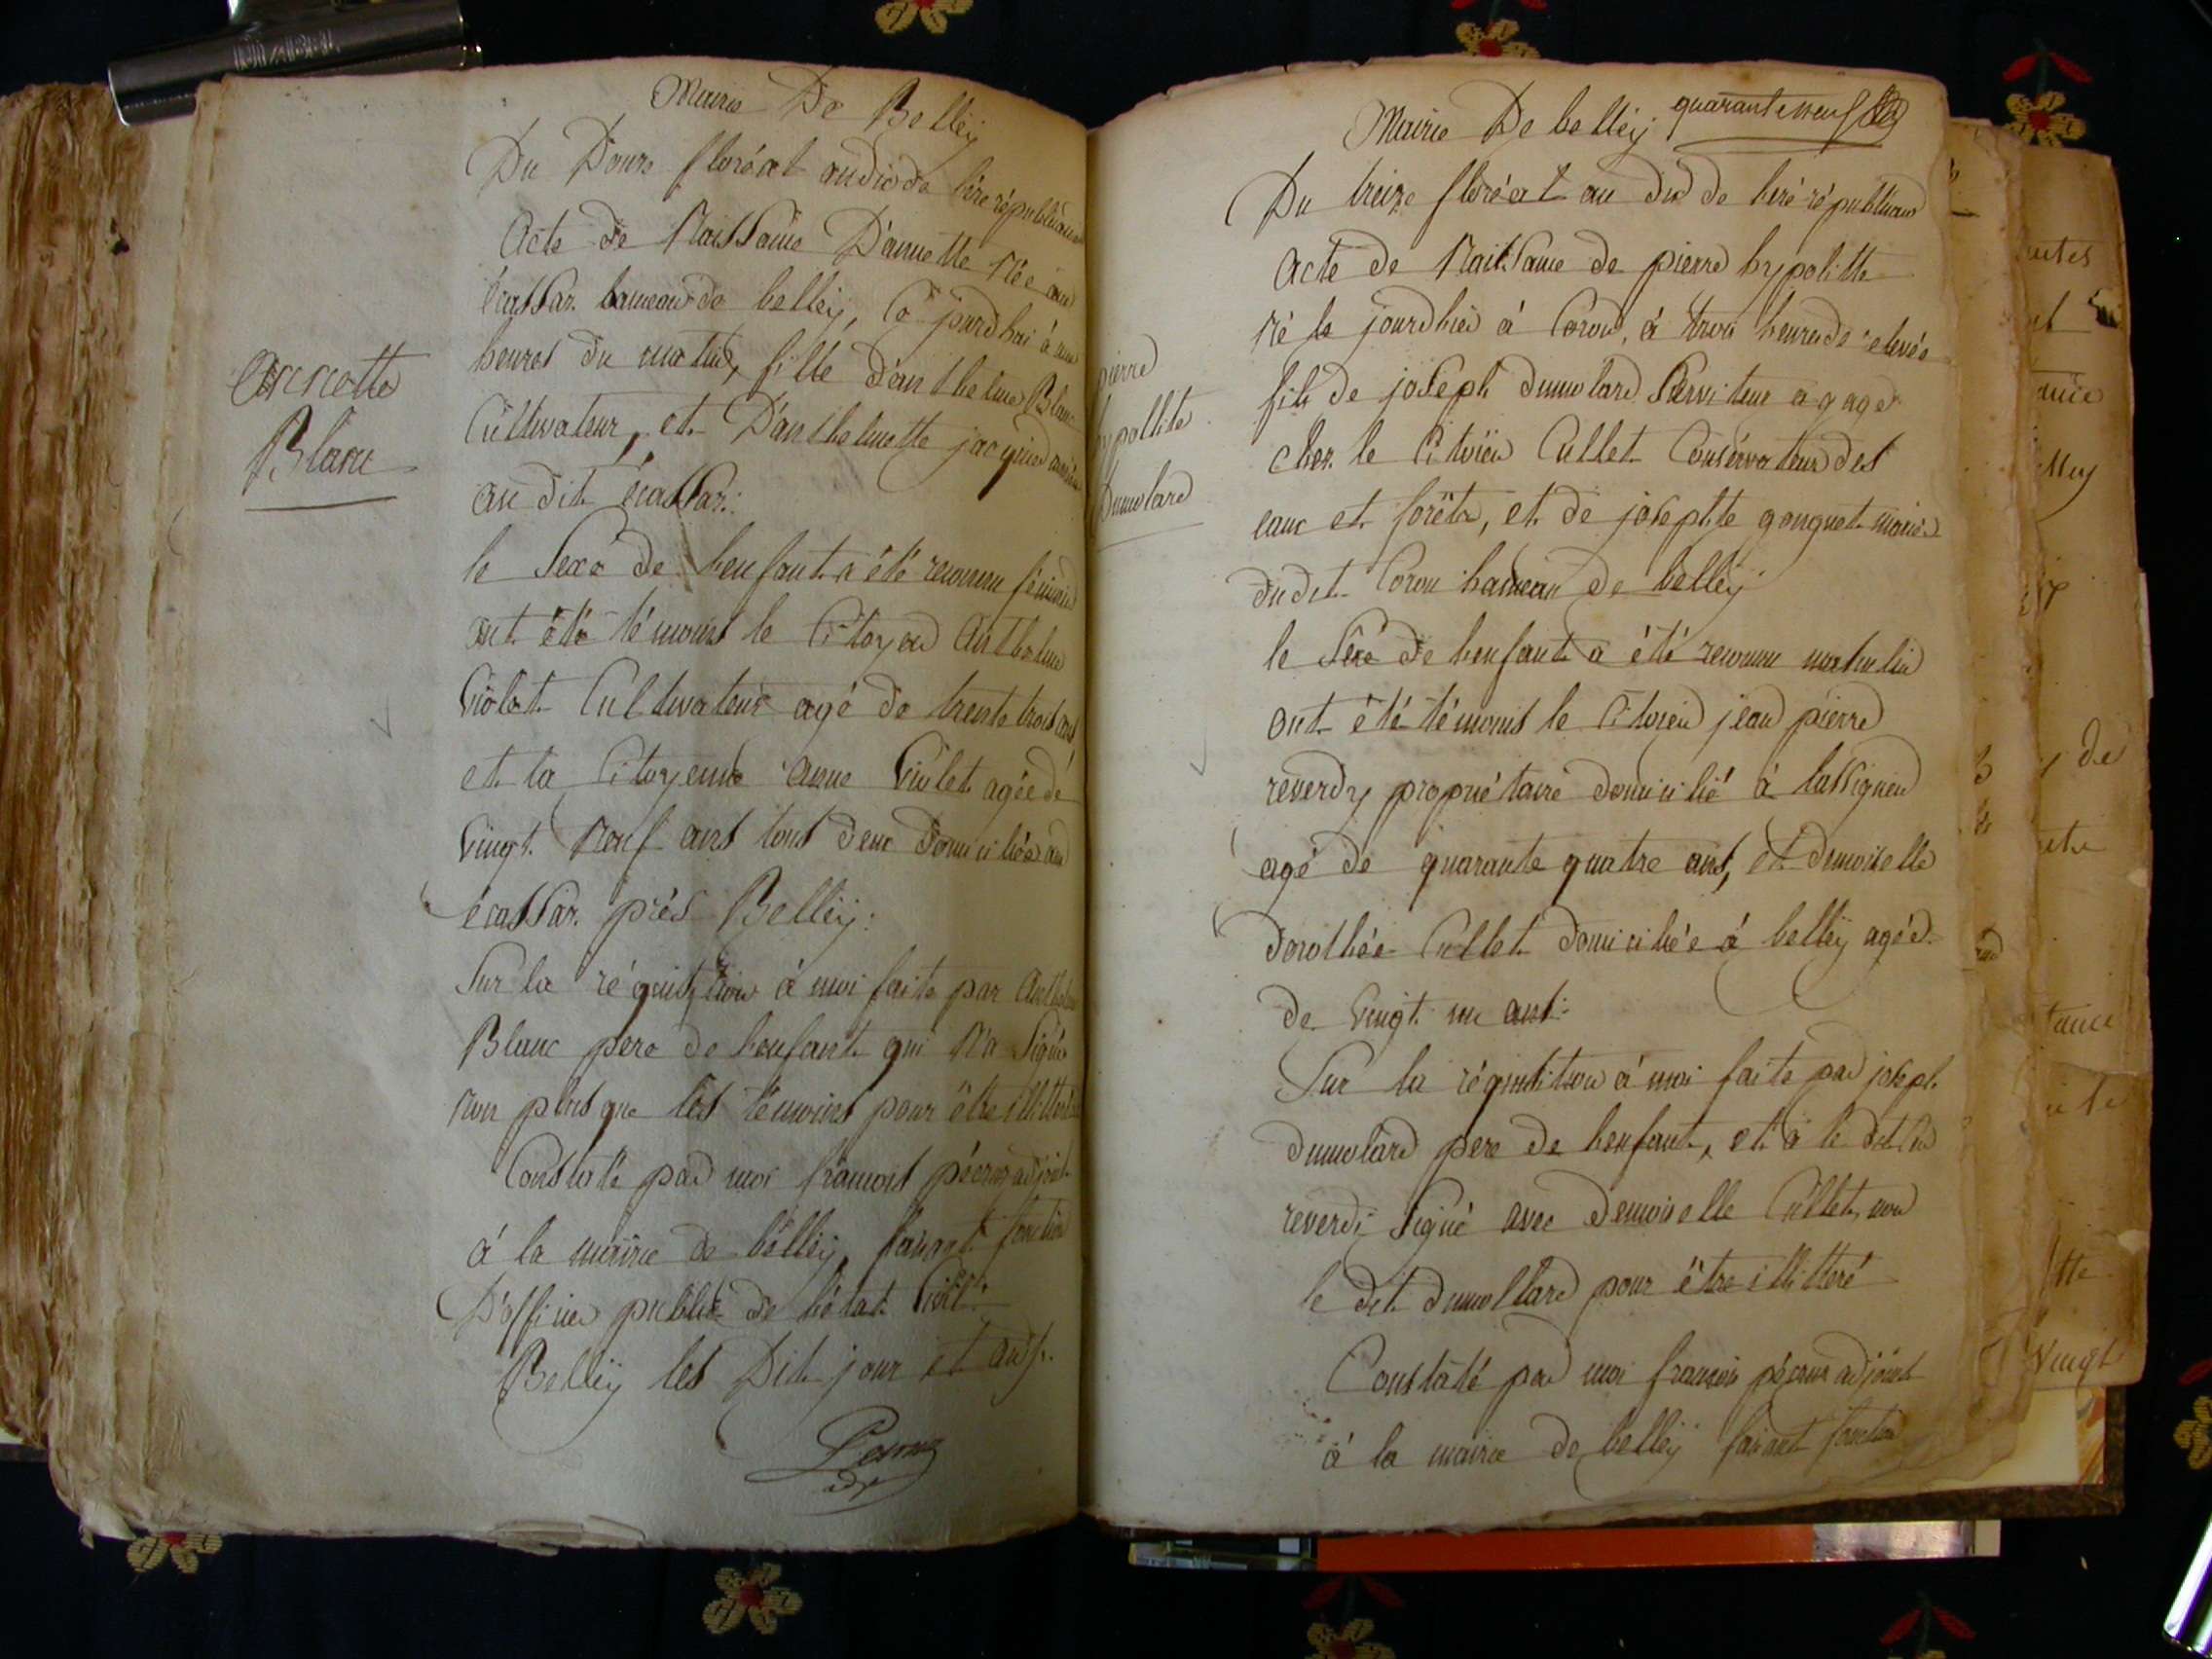 Mairie De Belley
Du Douze floréal an dix de l'ère républicaine
Acte de Naissance D'annette Née au
écassaz hameau de belley, Ce jourdhui à
heures du matin, fille d'anthelme Blanc
Cultivateur, et D'anthelmette jacquin mariés
au dit écassaz:
le Sexe de lenfant a été reconnu féminin
ont été témoins le Citoyen Anthelme
Violet Cultivateur agé de trente trois ans
et la Citoyenne anne Violet agée de
Vingt Neuf ans tous deux domiciliés au
écassaz près Belley:
Sur la réquisition à moi faite par Anthelme
Blanc pere de lenfant qui N'a Signé
non plus que les témoins pour être illittérés
Constaté par moi francois pécrus adjoint
à la mairie de belley, faisant fonction
D'officier public de l'état Civil:
Belley les Dit jour et an.
annette
Blanc
Mairie De belley quarante neuf
Du treize floréal an dix de lèré républicaine
Acte de Naissance de pierre hypolitte
Né le jourdhier à Coron, à trois heures de relevée
fils de joseph dumolard Serviteur a gage
chez le Citoïen Cullet Conservateur des
eaux et forêts, et de josephte gonguet mariés
dudit Coron hameau de belley
le Sexe de lenfant a été reconnu masculin
ont été témoins le Citoïen jean pierre
reverdy propriétaire domicilié à lassignieu
agé de quarante quatre ans, et demoiselle
dorothée Cullet domiciliée à belley agée
de Vingt un ans:
Sur la réquisition à moi faite par joseph
dumolard pere de lenfant, et a le dit
reverdi Signé avec demoiselle Cullet, non
le dit dumollard pour être illitteré
Constaté par moi francois pécrus adjoint
à la mairie de belley faisant fonction
pierre
hypollite
Dumolard